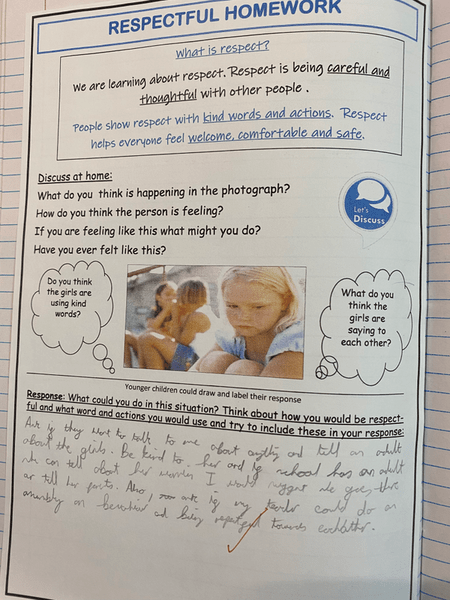 RESPECTFUL HOMEWORK
What is respect?
We are learning about respect. Respect is being careful and
thoughtful with other people .
People show respect with kind words and actions. Respect
helps everyone feel welcome, comfortable and safe.
Discuss at home:
What do you think is happening in the photograph?
How do you think the person is feeling?
If you are feeling like this what might you do?
Have you ever felt like this?
Let's
Discuss
Do you think
the girls are
using kind
words?
What do you
think the
girls are
saying to
each other?
Younger children could draw and label their response
Response: What could you do in this situation? Think about how you would be respect-
ful and what word and actions you would use and try to include these in your response:
Ask if they want to talk to me about anything and tell an adult
about the girls. Be kind to her and if school has an adult
who can tell about her worries I would suggest she goes there
or tell her parents. Also, ask if my teacher could do an
assembly on behaviour and being respectful towards eachother.